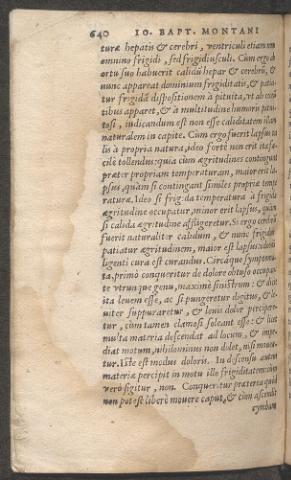 640 IO. BAPT. MONTANI
turæ hepatis & cerebri, ventriculi etiam non
omnino frigidi, sed frigidiusculi. Cum ergo ab
ortu suo habuerit calidũ hepar & cerebrũ, &
nunc appareat dominium frigiditatis, & patia-
tur frigidã dispositionem à pituita, vt ab excre
tibus apparet, & à multitudine humoris pitui
tosi, iudicandum est non esse caliditatem illam
naturalem in capite. Cùm ergo fuerit lapsus ta
lis à propria natura, ideo fortè non erit ita fa-
cilè tollendus: quia cùm ægritudines contingunt
præter propriam temperaturam, maior erit la
psus, quàm si contingant similes propriæ tempe
raturæ. Ideo si frigida temperatura à frigida
ægritudine occupatur, minor erit lapsus, quàm
si calida ægritudine affligeretur. Si ergo cerebrũ
fuerit naturaliter calidum, & nunc frigidã
patiatur ægritudinem, maior est lapsus: & dili
ligenti cura est curandus. Circa quæ symptoma-
ta, primò conqueritur de dolore obtuso occupan
te vtrunque genu, maximè sinistrum: & dicit
ita leuem esse, ac si pungeretur digitus, & le-
uiter suppuraretur, & leuis dolor percipere-
tur, cùm tamen clamosi soleant esse: & licet
multa materia descendat ad locum, & impe-
diat motum, nihilominus non dolet, nisi mouea-
tur. Iste est modus doloris. In descensu autem
materiæ percipit in motu illo frigiditatem: cùm
verò figitur, non. Conqueritur præterea quòd
non potest liberè mouere caput, & cùm ascendit
cymbam